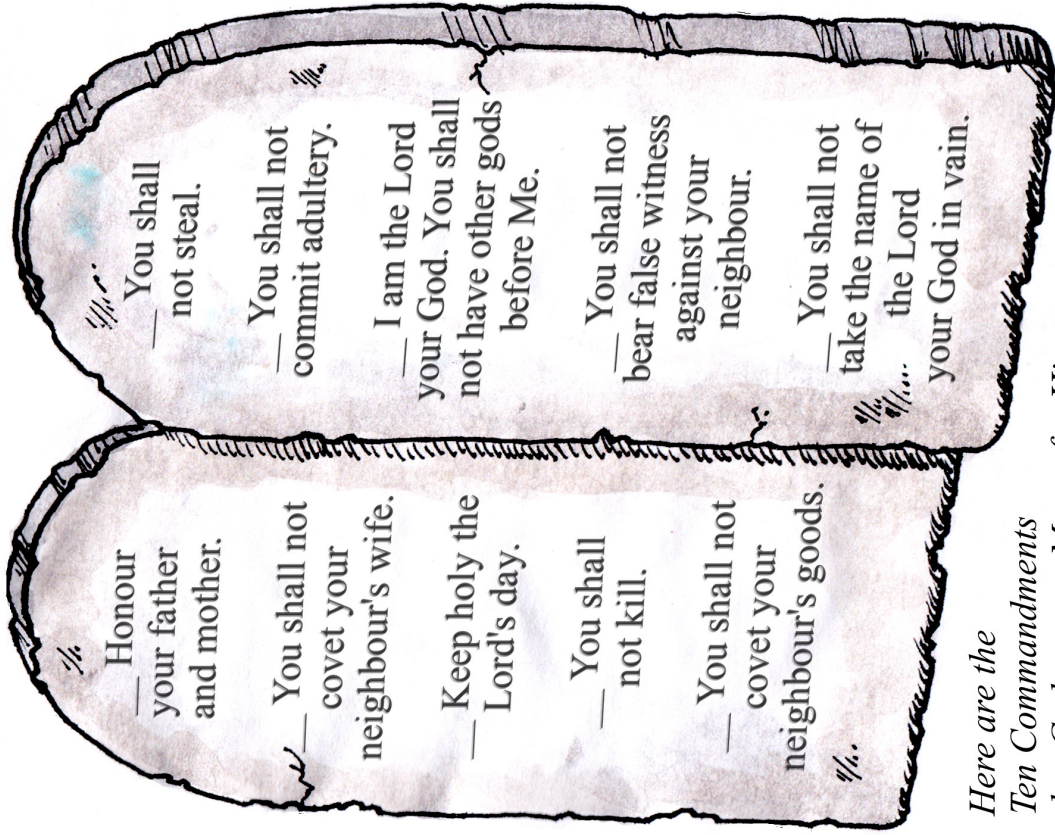 ___ Honour
your father
and mother.
___ You shall not
covet your
neighbour's wife.
___ Keep holy the
Lord's day.
___ You shall
not kill.
___ You shall not
covet your
neighbour's goods.
___ You shall
not steal.
___ You shall not
commit adultery.
___ I am the Lord
your God. You shall
not have other gods
before Me.
___ You shall not
bear false witness
against your
neighbour.
___ You shall not
take the name of
the Lord
your God in vain.
Here are the
Ten Commandments